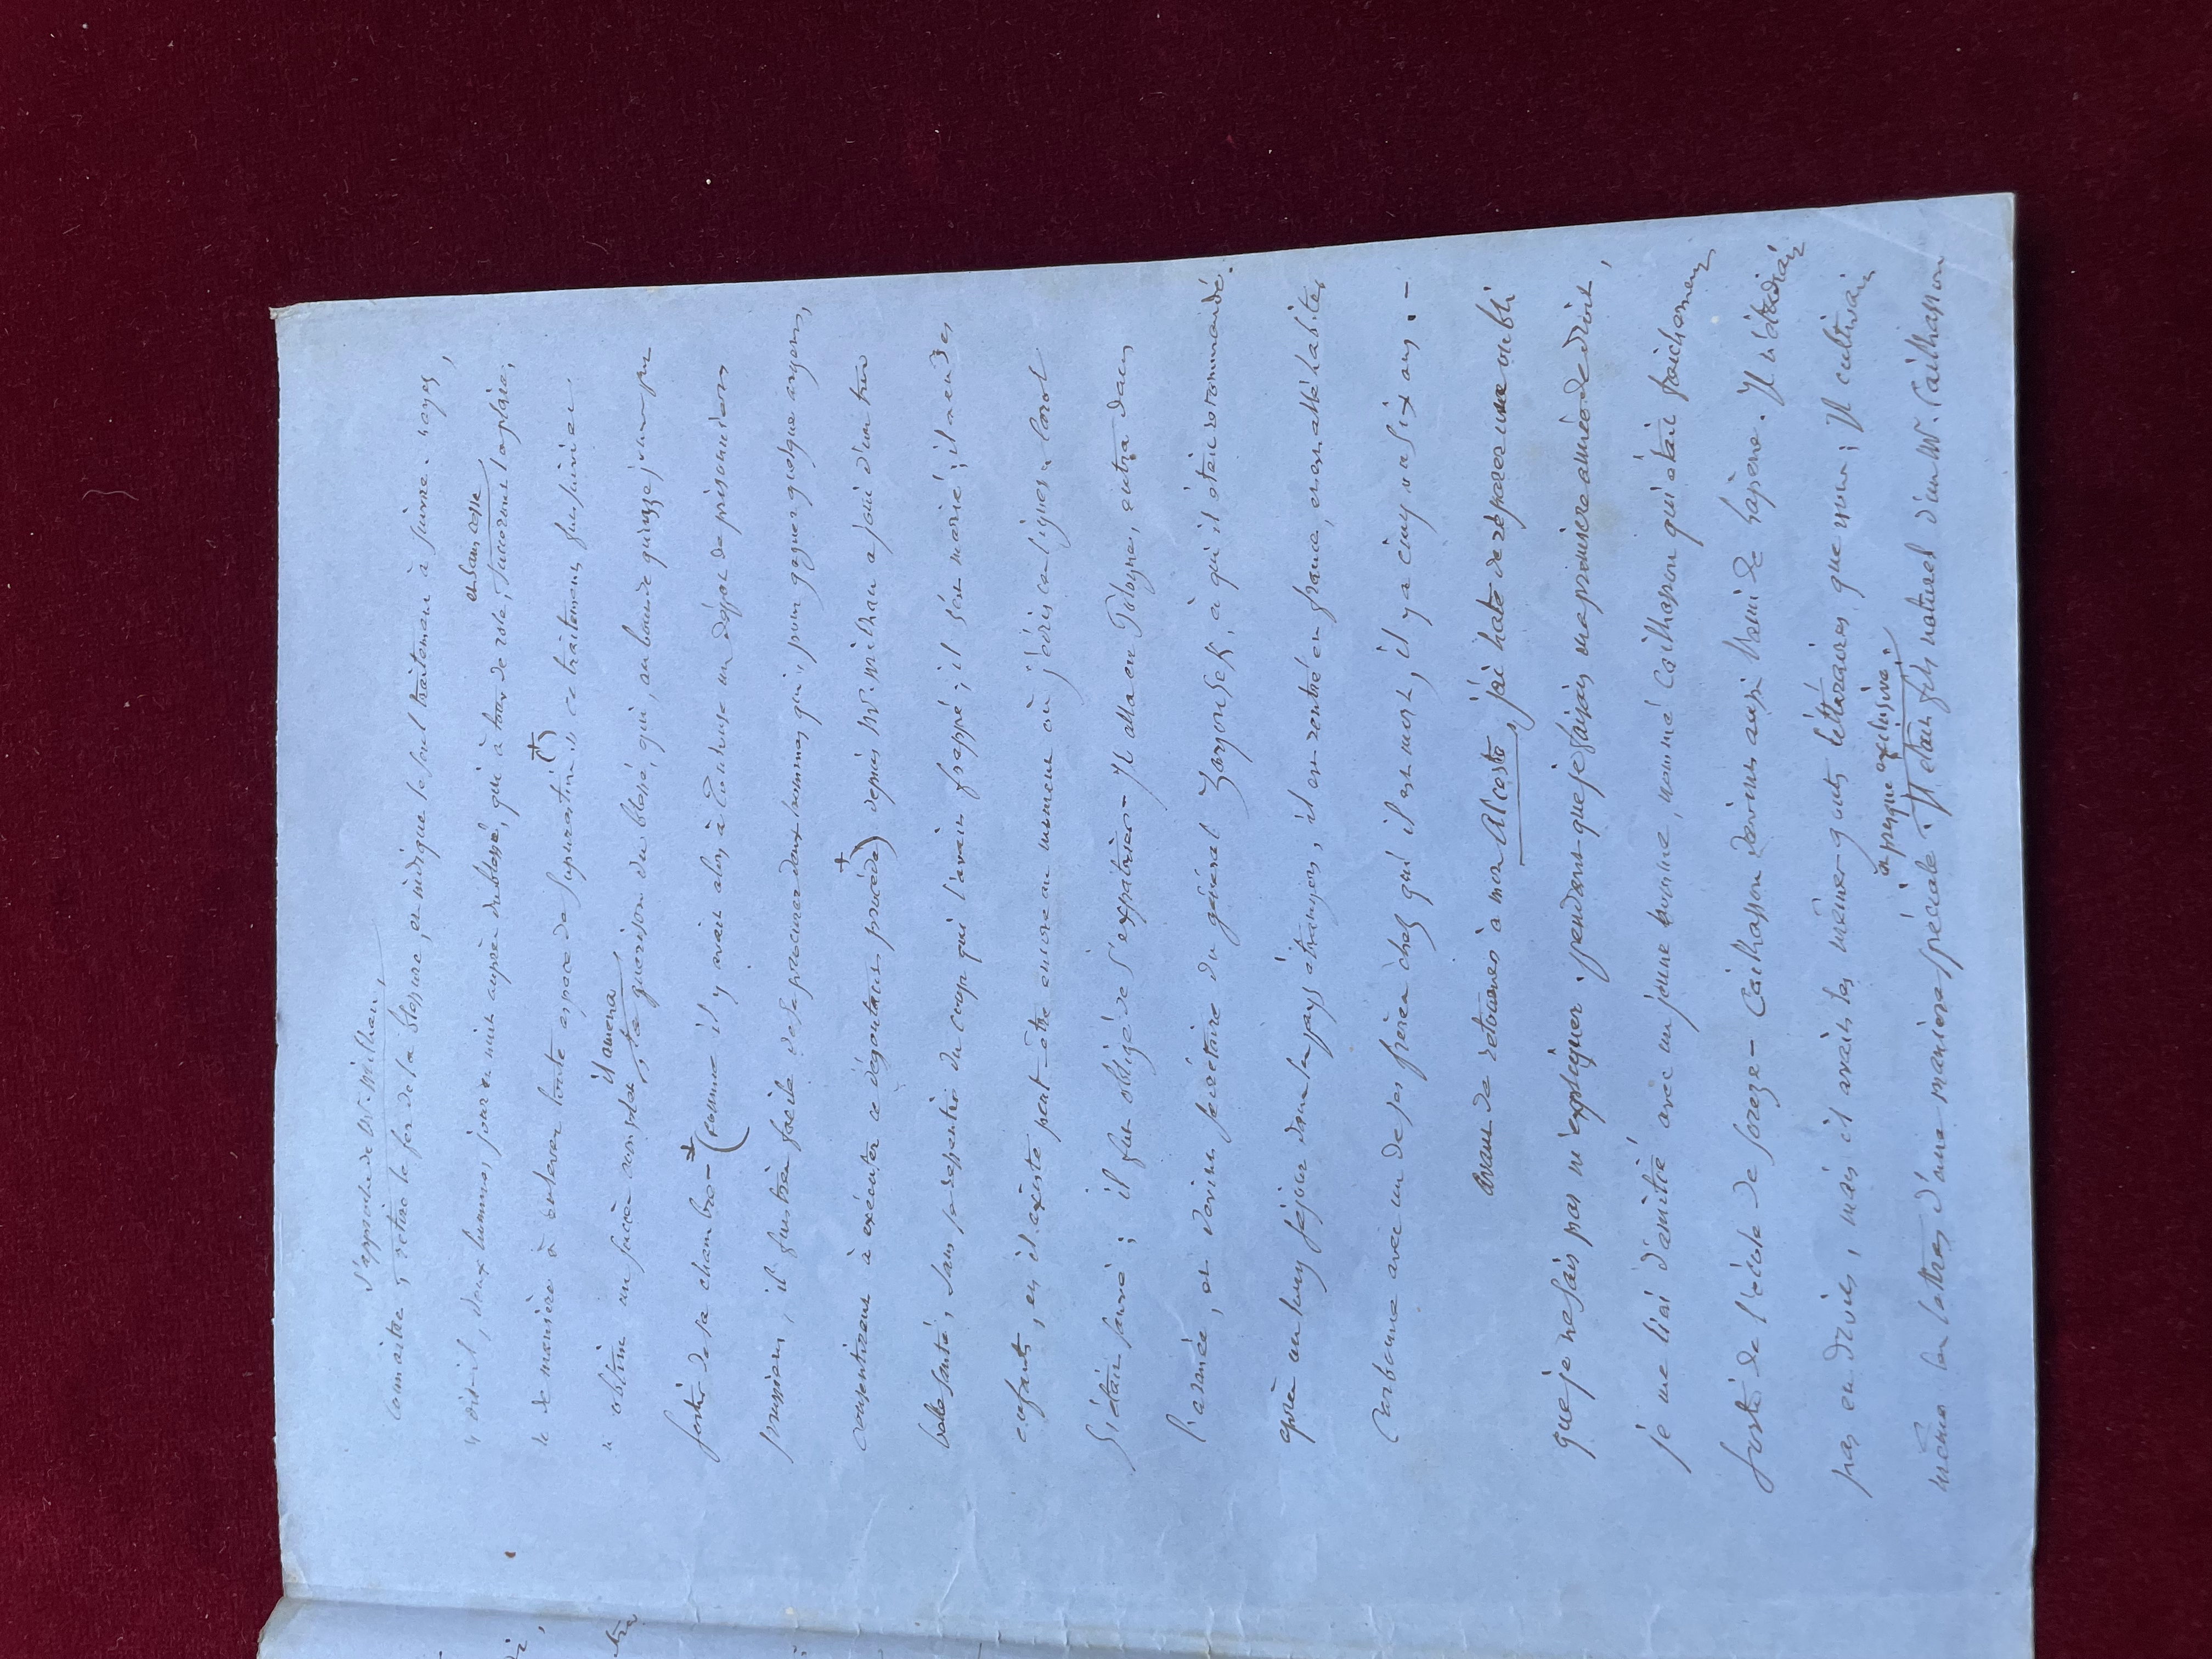 s'approche de Mr. Milhau,
connaitre, retire le fer de la blessure, et indique le seul traitement à suivre. "ayez,
et sans cesse
" dit-il, deux hommes, jour et nuit auprès du blessé, qui à tour de role, succeront la plaie,
" de manière à enlever toute espace de supuration" (+) ce traitement fut suivi et
il amena
" obtint un succès complet, la guerison du blessé, qui, au bout de quinze jours put
sortir de sa chambre - + (comme il y avait alors à Toulouse un dépot de prisonniers
prussiens, il fut très facile de se procurer deux hommes qui, pour gagner quelque argent,
consentirent à exécuter ce dégoutant procédé) + depuis Mr. Milhau a joui d'une très
belle santé, sans se ressentir du coup qui l'avait frappé; il s'est marié; il a eu des
enfants, et il existe peut-être encore au moment où j'écris ces lignes. Carol
s'était sauvé; il fut obligé de s'expatrier - Il alla en Pologne, entra dans
l'armée, et devint secrétaire du général Zayonsek, à qui il était recommandé.
après un long séjour dans les pays étrangers, il est rentré en france, est allé habiter
Narbonne avec un de ses frères chez qui il est mort, il y a cinq ou six ans. -
avant de retourner à mon Alceste, j'ai hate de réparer un oubli
que je ne sais pas m'expliquer. pendant que je faisais ma premiere année de droit,
je me liai d'amitié avec un jeune homme, nommé Cailhasson qui était fraichement
sorti de l'école de Soreze - Cailhasson devint aussi l'ami de Lajone. Il n'étudiait
pas en droit, mais il avait les mêmes gouts littéraires que nous; Il cultivait
et presque exclusive.
même les lettres d'une maniere spéciale. Il etait fils naturel d'un Mr. Cailhasson